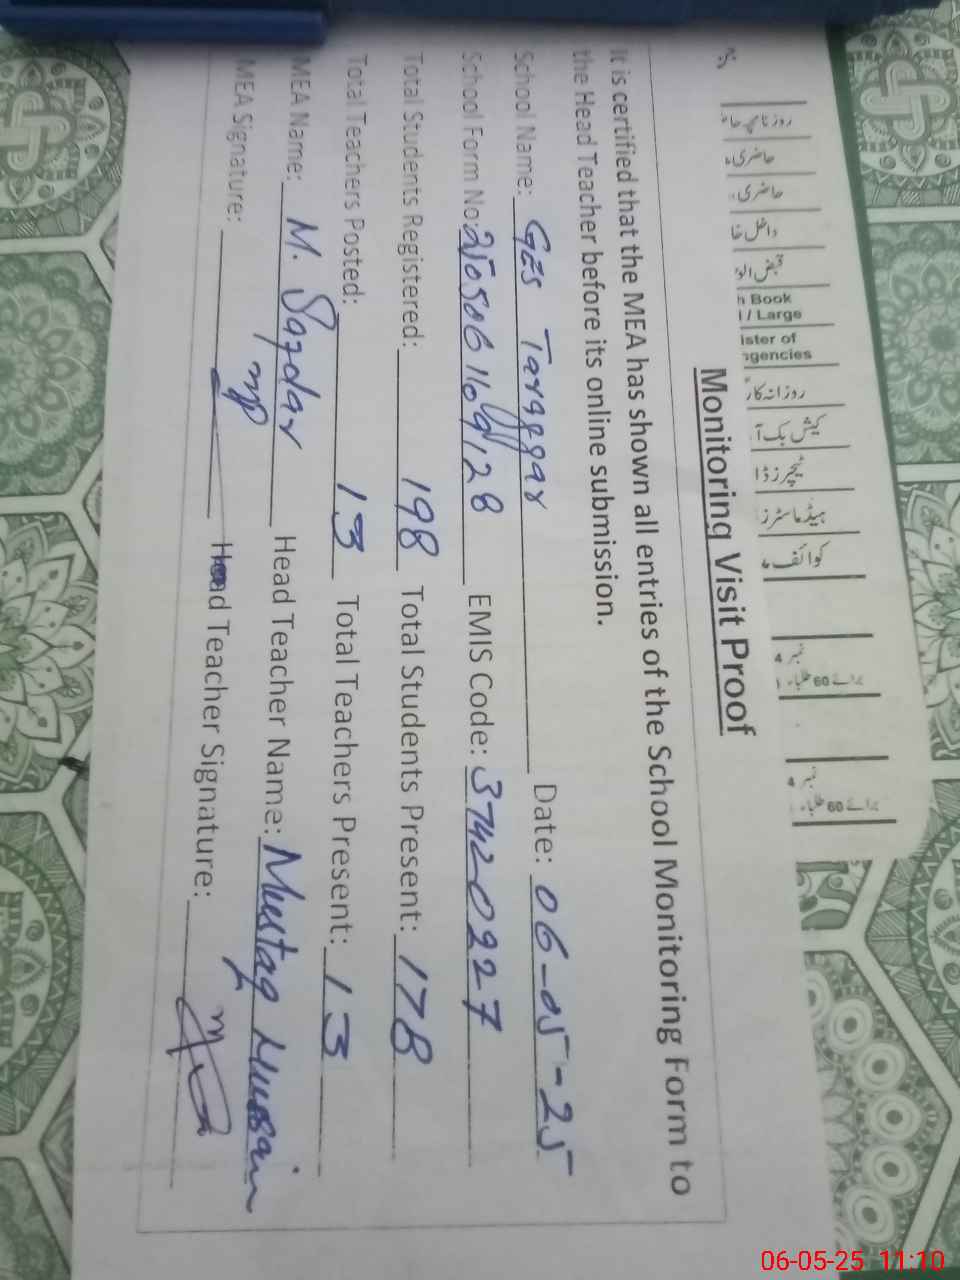 روزنا
حاضری
حاضری
داخل خا
قبض الو
h Book
l / Large
ister of
gencies
روزانہ کار
کیش بک آ
ٹیچرز ڈا
ہیڈ ماسٹرز
کوائف
نمبر 4
برائے 60 طلباء
نمبر 4
برائے 60 طلباء
Monitoring Visit Proof
It is certified that the MEA has shown all entries of the School Monitoring Form to
the Head Teacher before its online submission.
School Name: GES Date: 06-05-25
School Form No: EMIS Code: 37420227
Total Students Registered: 198 Total Students Present: 178
Total Teachers Posted: 13 Total Teachers Present: 13
MEA Name: M. Head Teacher Name: Mustaq Hussain
MEA Signature: Head Teacher Signature:
06-05-25 11:10